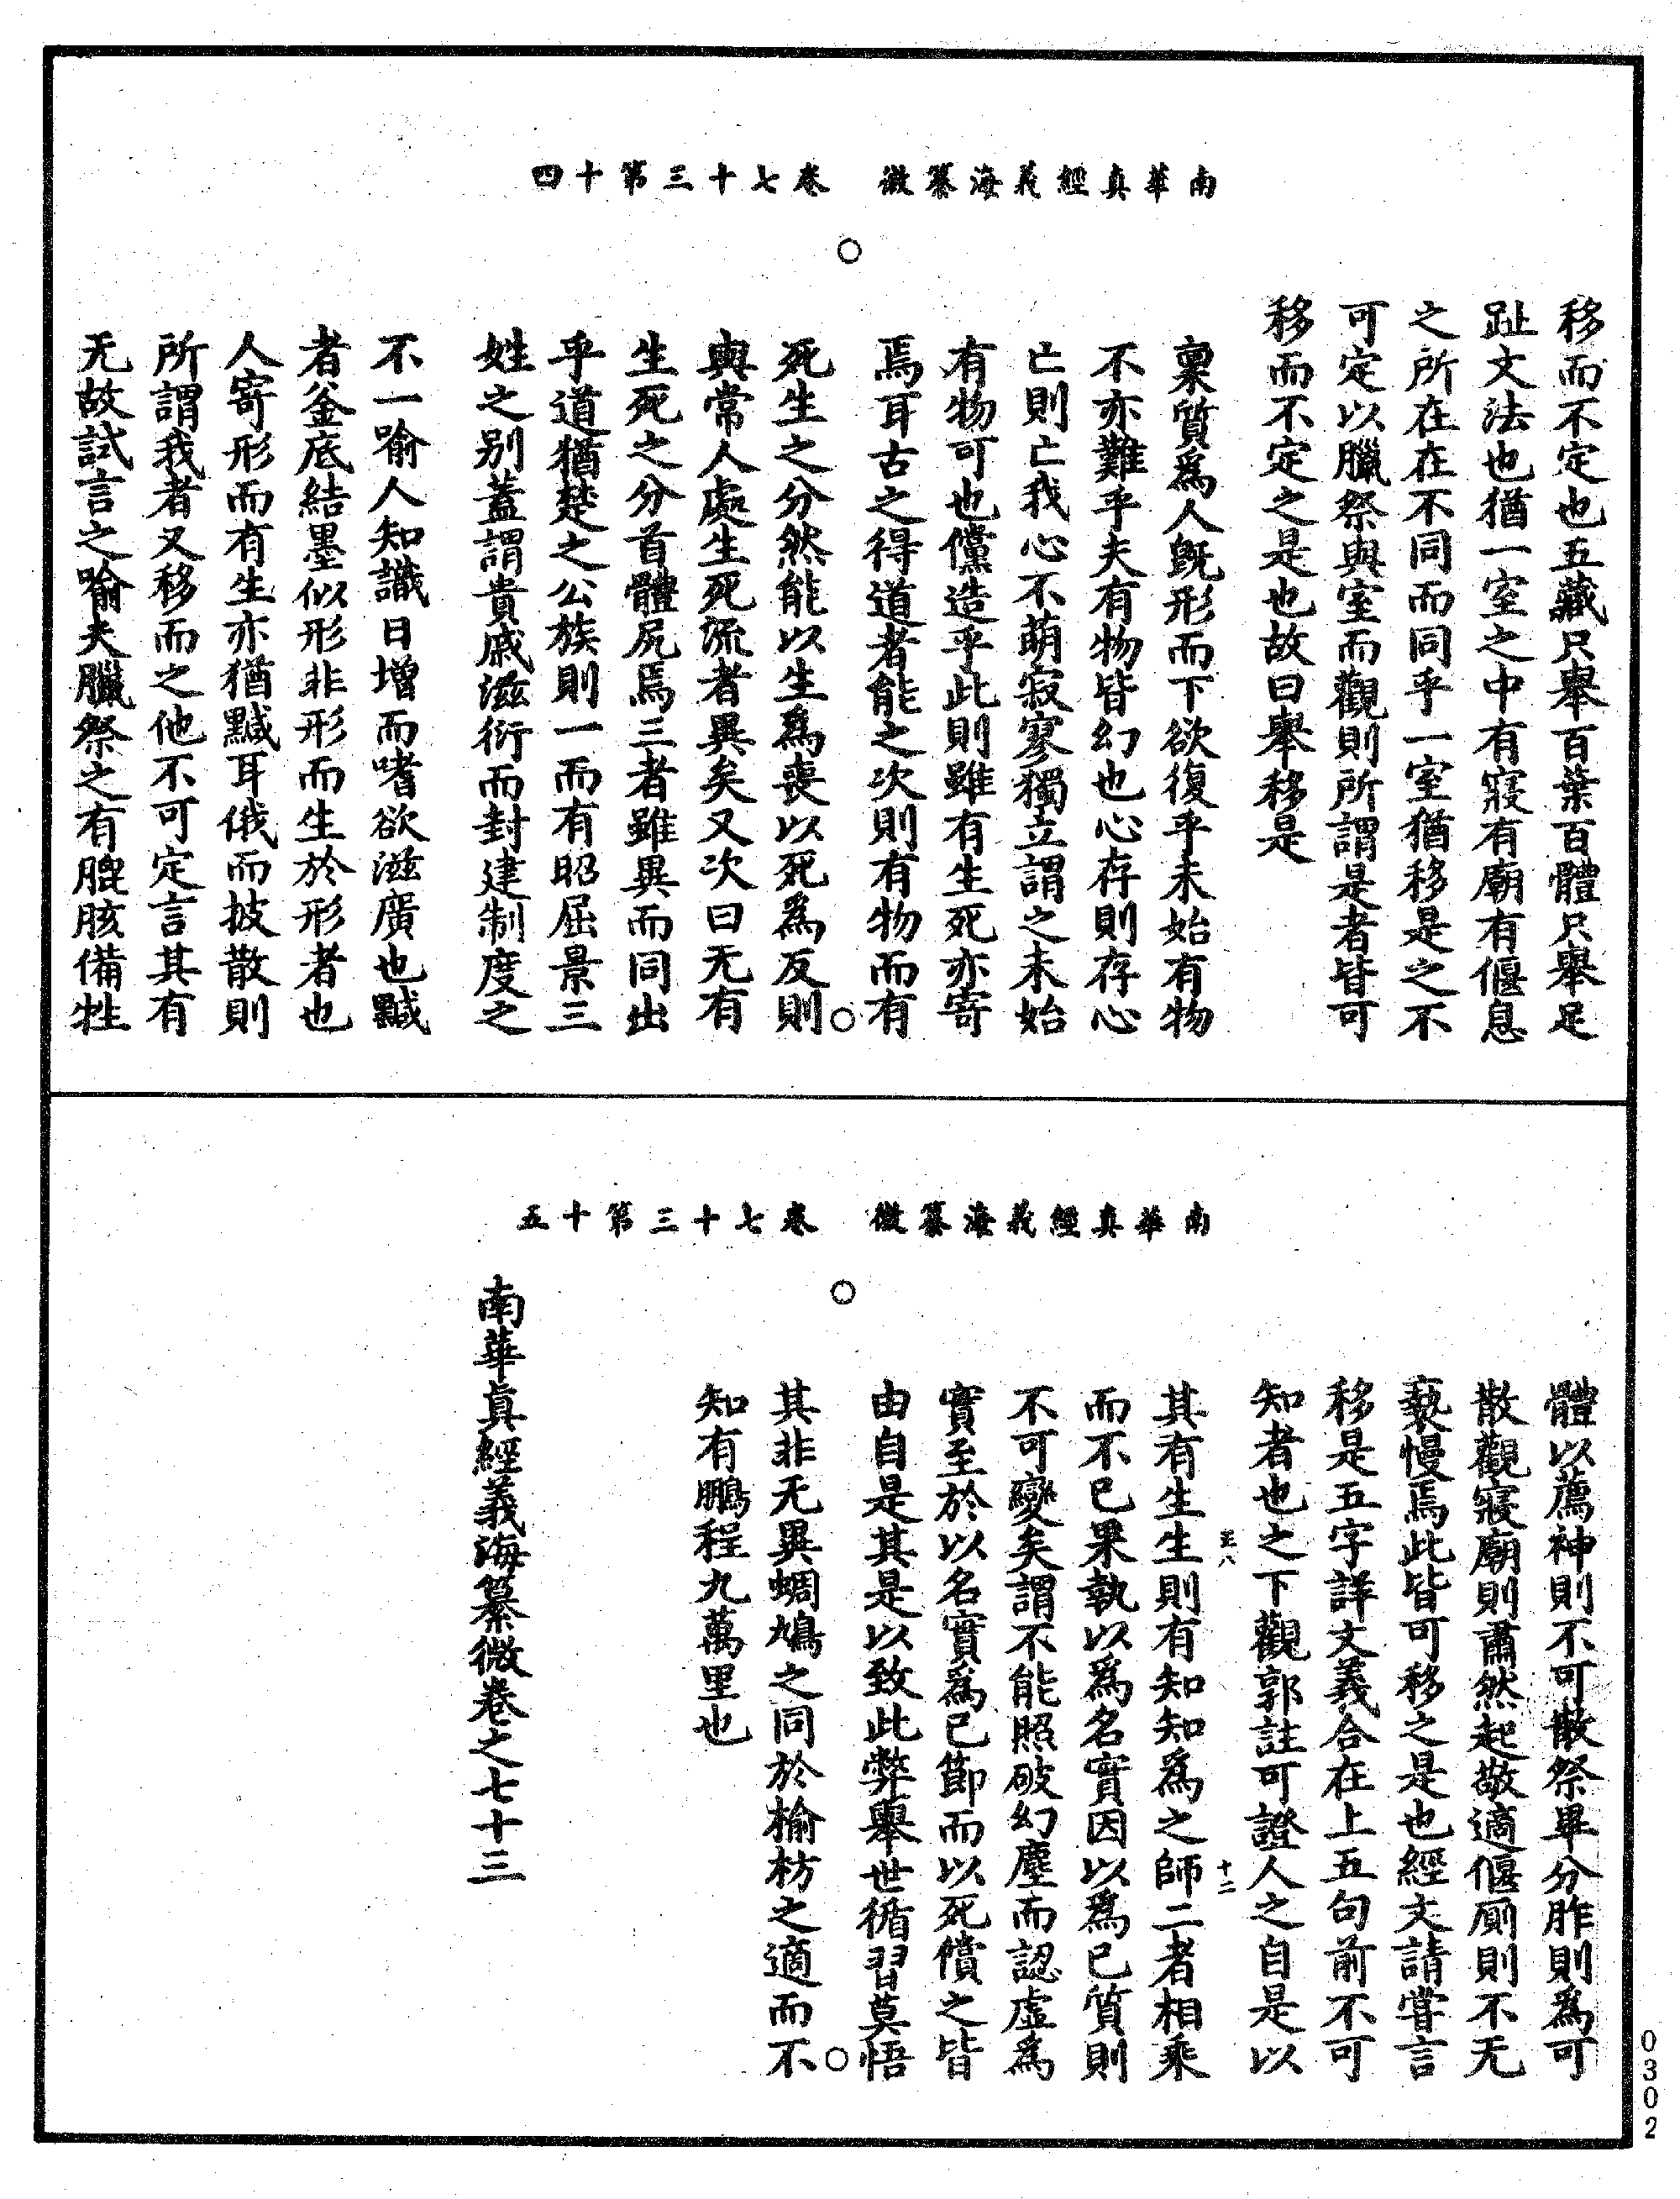 南華真經義海纂微　卷七十三第十四
移而不定也五藏只舉百葉百體只舉足
趾文法也猶一室之中有寢有廟有偃息
之所在在不同而同乎一室猶移是之不
可定以臘祭與室而觀則所謂是者皆可
移而不定之是也故曰舉移是
稟質為人既形而下欲復乎未始有物
不亦難乎夫有物皆幻也心存則存心
亡則亡我心不萌寂寥獨立謂之未始
有物可也儻造乎此則雖有生死亦寄
焉耳古之得道者能之次則有物而有
死生之分然能以生爲喪以死為反則
與常人處生死流者異矣又次曰无有
生死之分首體尻焉三者雖異而同出
乎道猶楚之公族則一而有昭屈景三
姓之别蓋謂貴戚滋衍而封建制度之
不一喻人知識日增而嗜欲滋廣也黬
者釜底結墨似形非形而生於形者也
人寄形而有生亦猶黬耳俄而披散則
所謂我者又移而之他不可定言其有
无故試言之喻夫臘祭之有膍胲備牲
南華真經義海纂微　卷七十三第十五
體以薦神則不可散祭畢分胙則為可
散觀寢廟則肅然起敬適偃厠則不无
褻慢焉此皆可移之是也經文請嘗言
移是五字詳文義合在上五句前不可
知者也之下觀郭註可證人之自是以
其有生生則有知知爲之師二者相乘
而不已果執以爲名實因以爲已質則
不可變矣謂不能照破幻塵而認虛爲
實至於以名實爲已節而以死償之皆
由自是其是以致此弊舉世循習莫悟
其非无異蜩鳩之同於榆枋之適而不
知有鵬程九萬里也
南華真經義海纂微卷之七十三
十二
0302